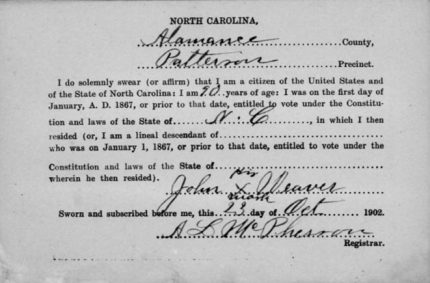 NORTH CAROLINA,
Alamance County,
Patterson Precinct.
I do solemnly swear (or affirm) that I am a citizen of the United States and
of the State of North Carolina: I am 90 years of age: I was on the first day of
January, A. D. 1867, or prior to that date, entitled to vote under the Constitu-
tion and laws of the State of N. C , in which I then
resided (or, I am a lineal descendant of
who was on January 1, 1867, or prior to that date, entitled to vote under the
Constitution and laws of the State of
wherein he then resided).
his
John X Weaver
mark
Sworn and subscribed before me, this 23 day of Oct 1902.
A L McPherson
Registrar.